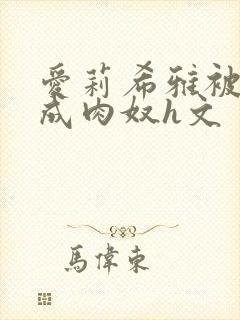 愛莉希雅被
成肉奴h文
馬偉東